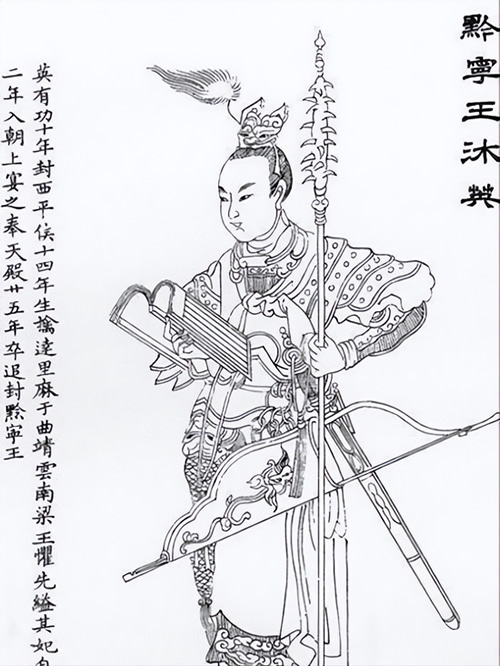 黔寧王沐英
英有功十年封西平侯十四年生擒達里麻于曲靖雲南梁王懼先縊其妃自
二年入朝上宴之奉天殿廿五年卒追封黔寧王